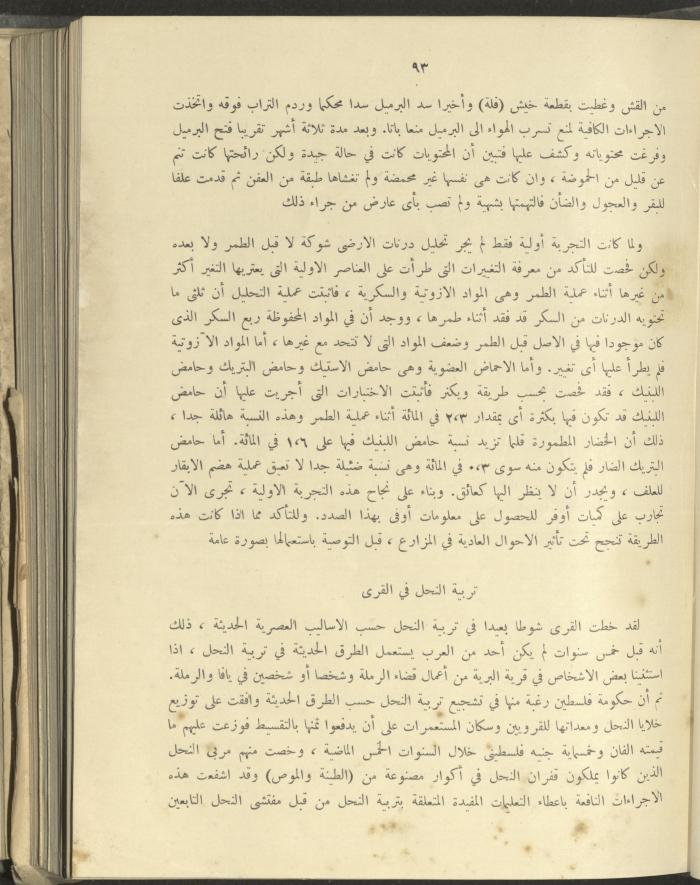 ٩٣
من القش وغطيت بقطعة خيش (فلة) وأخيرا سد البرميل سدا محكما وردم التراب فوقه واتخذت
الاجراءات الكافية لمنع تسرب الهواء الى البرميل منعا باتا. وبعد مدة ثلاثة أشهر تقريبا فتح البرميل
وفرغت محتوياته وكشف عليها فتبين أن المحتويات كانت في حالة جيدة ولكن رائحتها كانت تنم
عن قليل من الحموضة ، وان كانت هى نفسها غير محمضة ولم تغشاها طبقة من العفن ثم قدمت علفا
للبقر والعجول والضأن فالتهمتها بشهية ولم تصب بأى عارض من جراء ذلك
ولما كانت التجربة أولية فقط لم يجر تحليل درنات الارضى شوكة لا قبل الطمر ولا بعده
ولكن فحصت للتأكد من معرفة التغيرات التى طرأت على العناصر الاولية التى يعتريها التغير أكثر
من غيرها أثناء عملية الطمر وهى المواد الازوتية والسكرية ، فاثبتت عملية التحليل أن ثلثى ما
تحتويه الدرنات من السكر قد فقد أثناء طمرها ، ووجد أن في المواد المحفوظة ربع السكر الذى
كان موجودا فيها في الاصل قبل الطمر وضعف المواد التى لا تتحد مع غيرها ، أما المواد الآزوتية
فلم يطرأ عليها أى تغيير. وأما الاحماض العضوية وهى حامض الاستيك وحامض البتريك وحامض
اللبنيك ، فقد فحصت بحسب طريقة ويكنر فأثبتت الاختبارات التى أجريت عليها أن حامض
اللبنيك قد تكون فيها بكثرة أى بمقدار ٢،٣ في المائة أثناء عملية الطمر وهذه النسبة هائلة جدا ،
ذلك أن الخضار المطمورة قلما تزيد نسبة حامض اللبنيك فيها على ١،٦ في المائة. أما حامض
البتريك الضار فلم يتكون منه سوى ٠،٣ في المائة وهى نسبة ضئيلة جدا لا تعيق عملية هضم الابقار
للعلف ، ويجدر أن لا ينظر اليها كعائق. وبناء على نجاح هذه التجربة الاولية ، تجرى الآن
تجارب على كميات أوفر للحصول على معلومات أوفى بهذا الصدد. وللتأكد مما اذا كانت هذه
الطريقة تنجح تحت تأثير الاحوال العادية في المزارع ، قبل التوصية باستعمالها بصورة عامة
تربية النحل في القرى
لقد خطت القرى شوطا بعيدا في تربية النحل حسب الاساليب العصرية الحديثة ، ذلك
أنه قبل خمس سنوات لم يكن أحد من العرب يستعمل الطرق الحديثة في تربية النحل ، اذا
استثنينا بعض الاشخاص في قرية البرية من أعمال قضاء الرملة وشخصا أو شخصين في يافا والرملة.
ثم أن حكومة فلسطين رغبة منها في تشجيع تربية النحل حسب الطرق الحديثة وافقت على توزيع
خلايا النحل ومعداتها للقرويين وسكان المستعمرات على أن يدفعوا ثمنها بالتقسيط فوزعت عليهم ما
قيمته الفان وخمسماية جنيه فلسطينى خلال السنوات الخمس الماضية ، وخصت منهم مربى النحل
الذين كانوا يملكون قفران النحل في أكوار مصنوعة من (الطينة والموص) وقد اشفعت هذه
الاجراءات النافعة باعطاء التعليمات المفيدة المتعلقة بتربية النحل من قبل مفتشى النحل التابعين